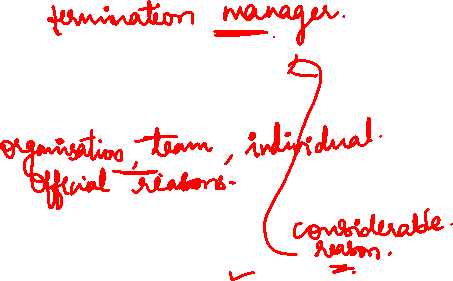 termination manager.
organisation, team, individual.
Official reasons.
considerable.
reason.